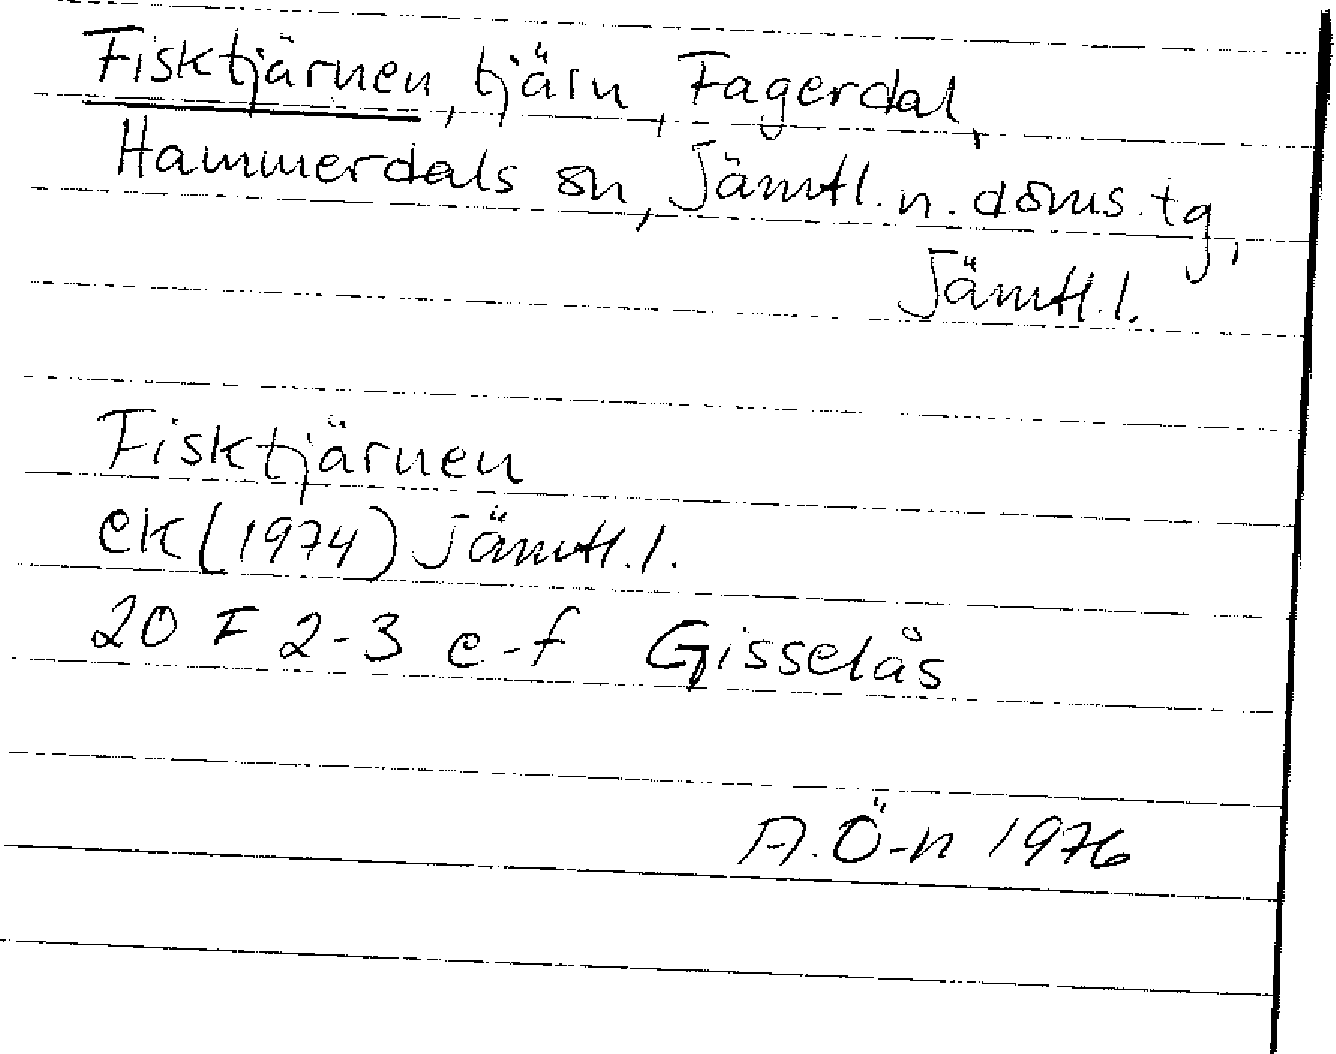 Fisktjärnen, tjärn, Fagerdal,
Hammerdals sn, Jämtl. n. doms. tg,
Jämtl. l.
Fisktjärnen
ek (1974) Jämtl. l.
20 F 2-3 e-f Gisselås
A. Ö-n 1976